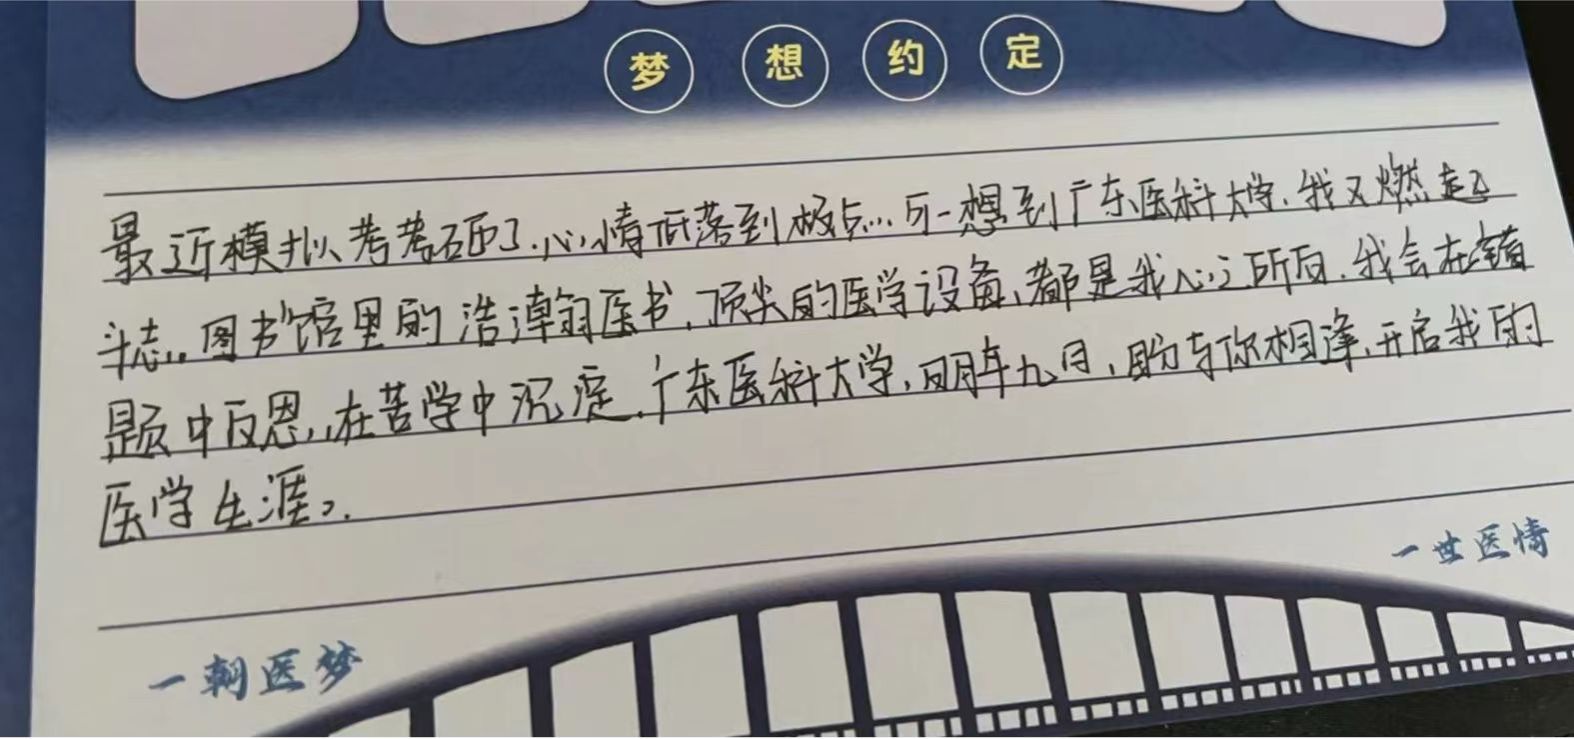 梦想约定
最近模拟考考砸了,心情低落到极点,可一想到广东医科大学,我又燃起
斗志,图书馆里的浩瀚医书,顶尖的医学设备,都是我心之所向,我会在错
题中反思,在苦学中沉淀,广东医科大学,明年九月,盼与你相逢,开启我的
医学生涯。
一世医情
一朝医梦